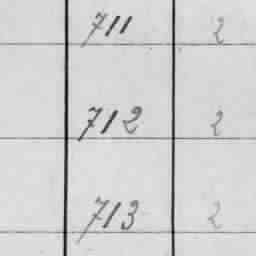 711 2
712 2
713 2